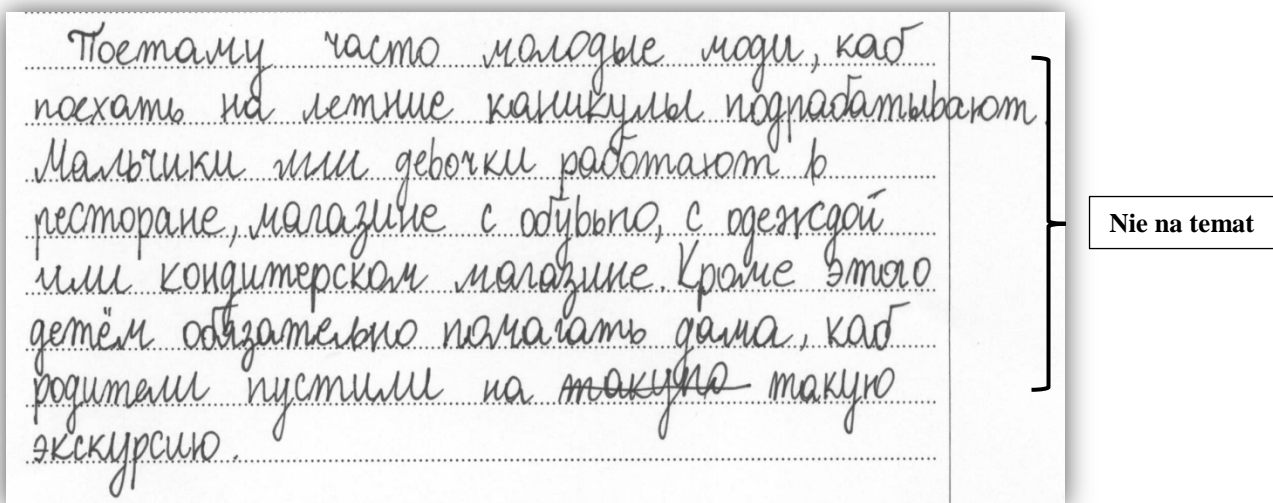 Поетаму часто молодые люди, каб
поехать на летние каникулы подрабатывают.
Мальчики или девочки работают в
ресторане, магазине с обувью, с одеждой
или кондитерском магазине. Кроме этого
детём обязательно помагать дама, каб
родители пустили на такую такую
экскурсию.
Nie na temat